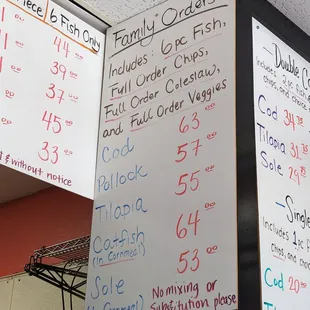 Piece
6 Fish Only
44
39
37 00
45 00
33 00
& without notice
Family Orders
Includes: 6 pc Fish,
Full Order Chips,
Full Order Coleslaw,
and Full Order Veggies
Cod 63 00
Pollock 57 00
Tilapia 55 00
Catfish 64 00
(in Cornmeal)
Sole 53 00
No mixing or
Substitution please
Double
Includes: 2 pc fish,
chips, and choice
Cod 34
Tilapia 31
Sole 29
Single
Includes 1
chips, and
Cod 20